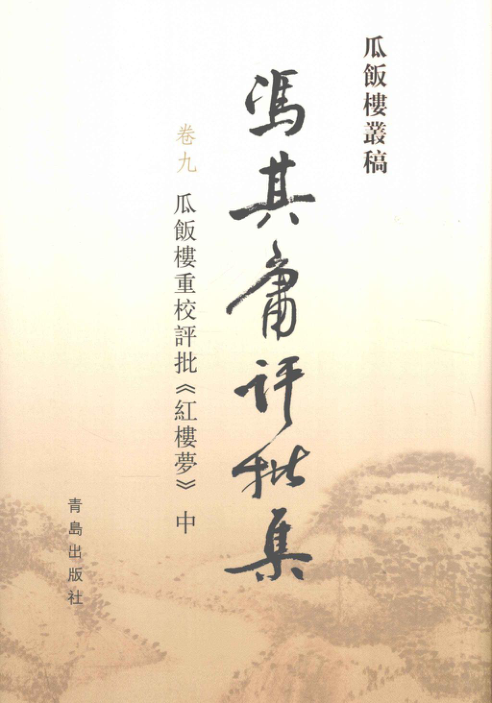 瓜飯樓叢稿
馮其庸评批集
卷九 瓜飯樓重校評批《紅樓夢》 中
青島出版社